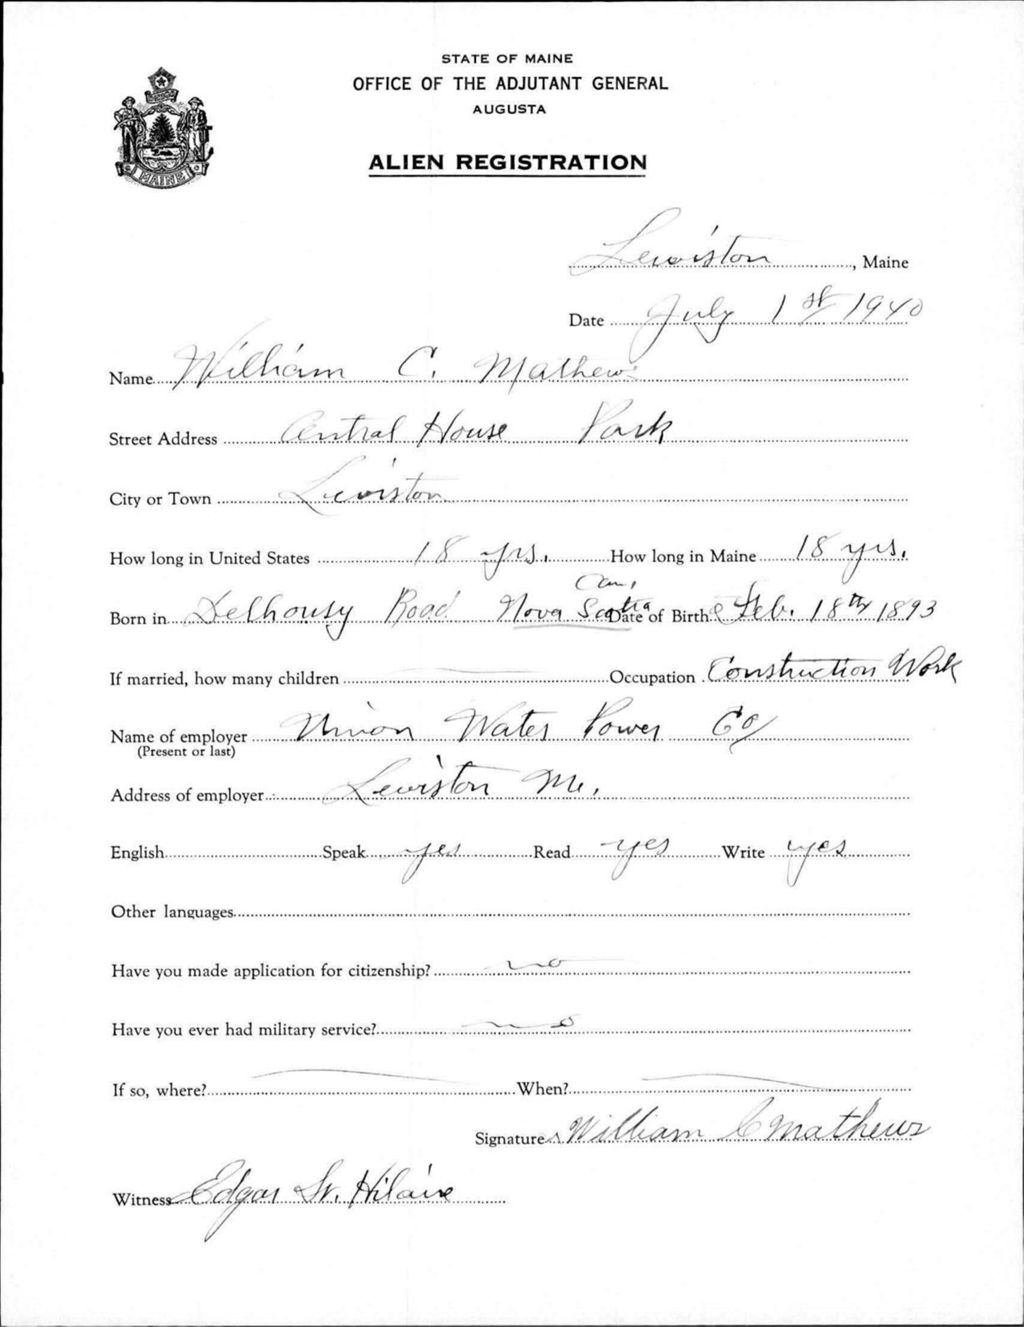 STATE OF MAINE
OFFICE OF THE ADJUTANT GENERAL
AUGUSTA
ALIEN REGISTRATION
MAINE
Lewiston, Maine
Date July 1st 1940
Name William C. Mathews
Street Address Central House Park
City or Town Lewiston
How long in United States 18 yrs. How long in Maine 18 yrs.
Can.
Born in Delhousy Road Nova Scotia Date of Birth Feb. 18th 1893
If married, how many children Occupation Construction Work
Name of employer Union Water Power Co
(Present or last)
Address of employer Lewiston Me.
English Speak yes Read yes Write yes
Other languages
Have you made application for citizenship? no
Have you ever had military service? no
If so, where? When?
Signature William C Mathews
Witness Edgar St. Hilaire